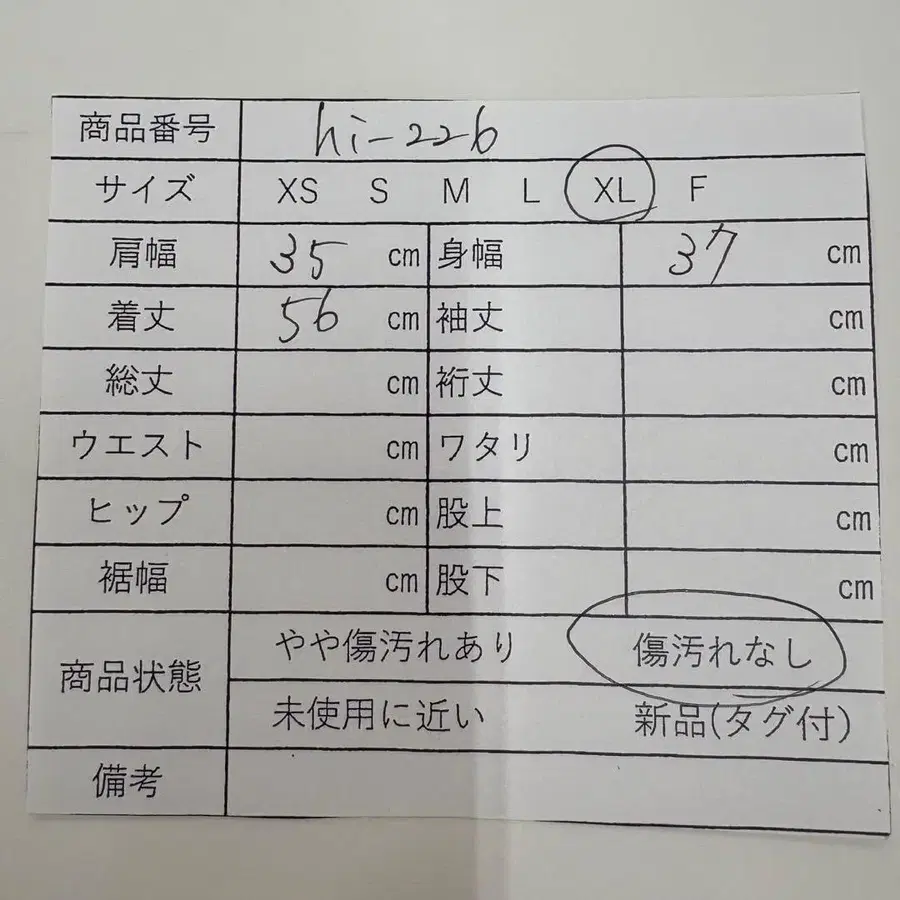 商品番号 hi-226
サイズ XS S M L XL F
肩幅 35 cm 身幅 37 cm
着丈 56 cm 袖丈 cm
総丈 cm 裄丈 cm
ウエスト cm ワタリ cm
ヒップ cm 股上 cm
裾幅 cm 股下 cm
商品状態 やや傷汚れあり 傷汚れなし
未使用に近い 新品(タグ付)
備考